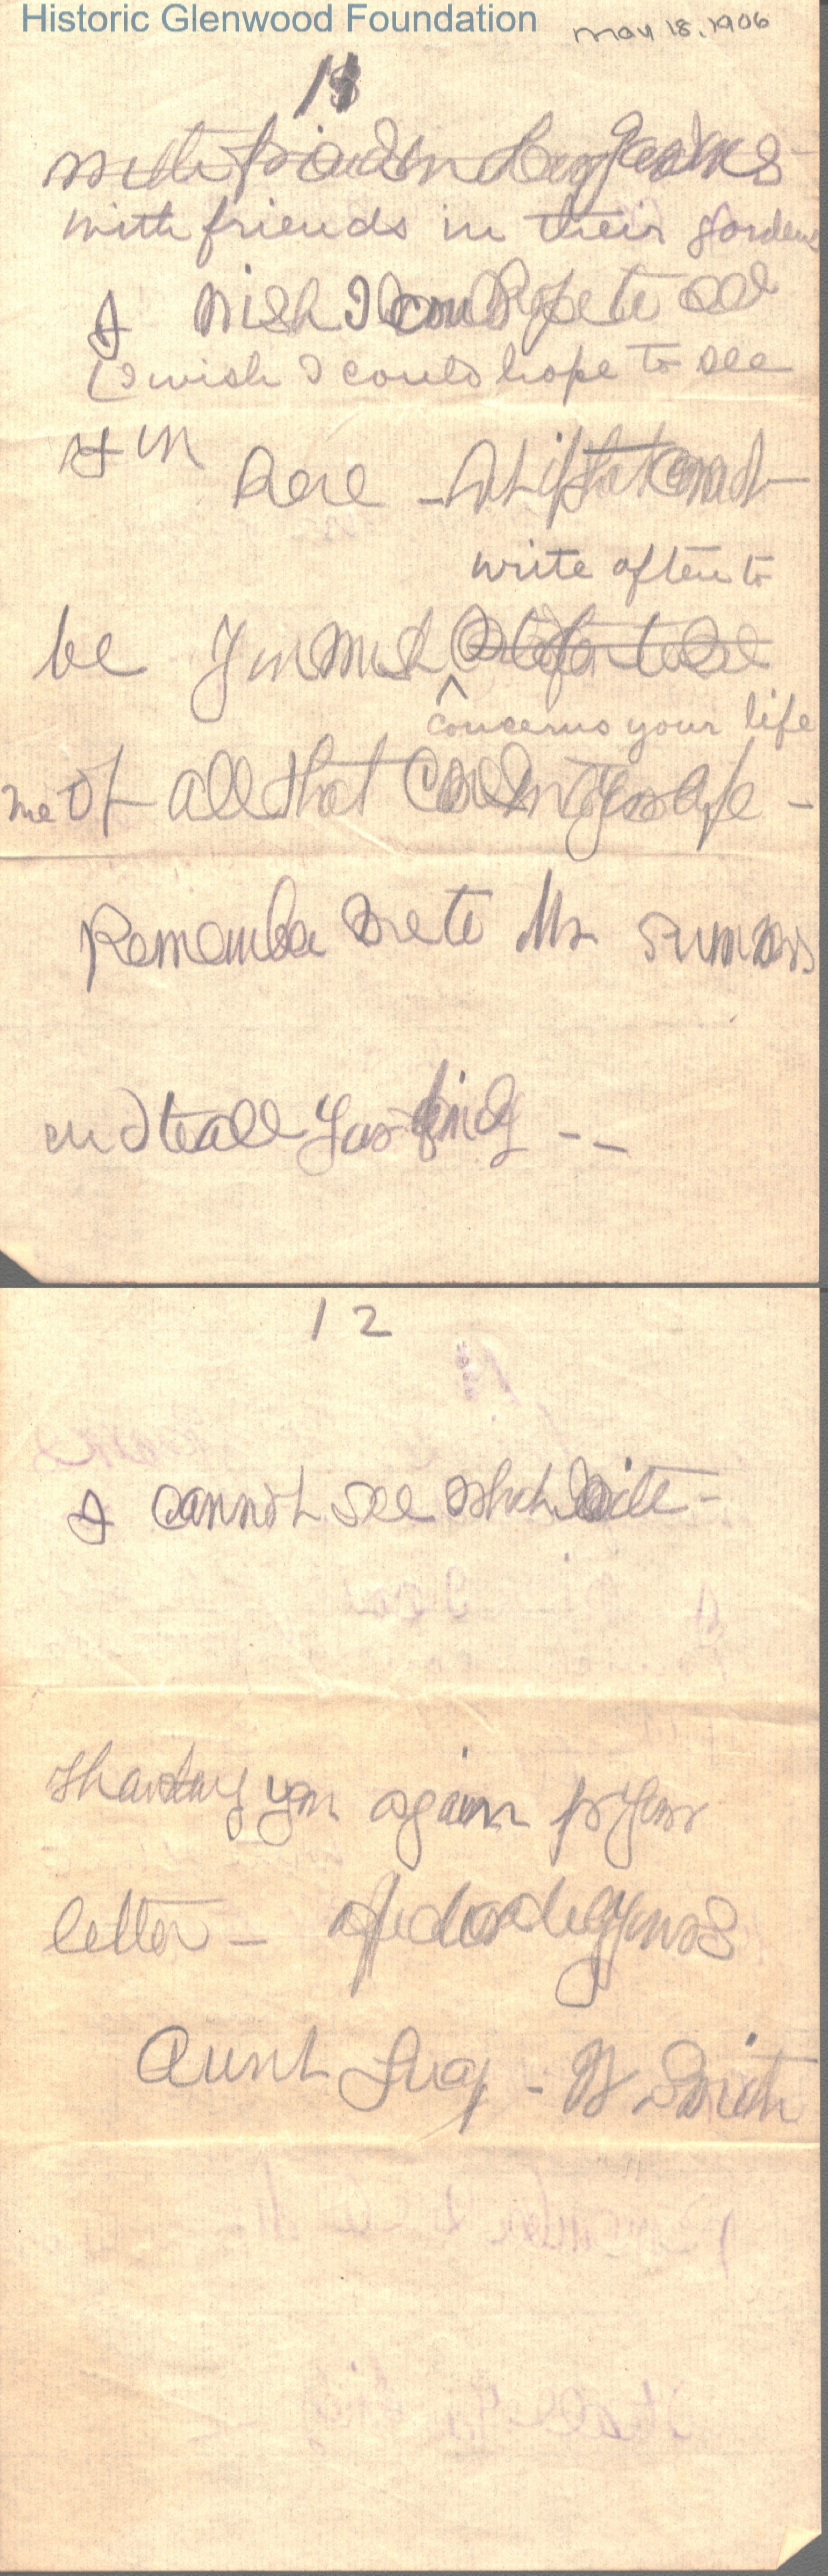 Historic Glenwood Foundation
May 18, 1906
11
with friends in their gardens
with friends in their gardens
I wish I could hope to see
(I wish I could hope to see
here -
write often to
be You must
concerns your life
me of all that concerns your life -
Remember me to Mr Summers
and to all your family --
12
I cannot see what I write -
Thanking you again for your
letter - affectionately yours
Aunt Lucy - W Smith